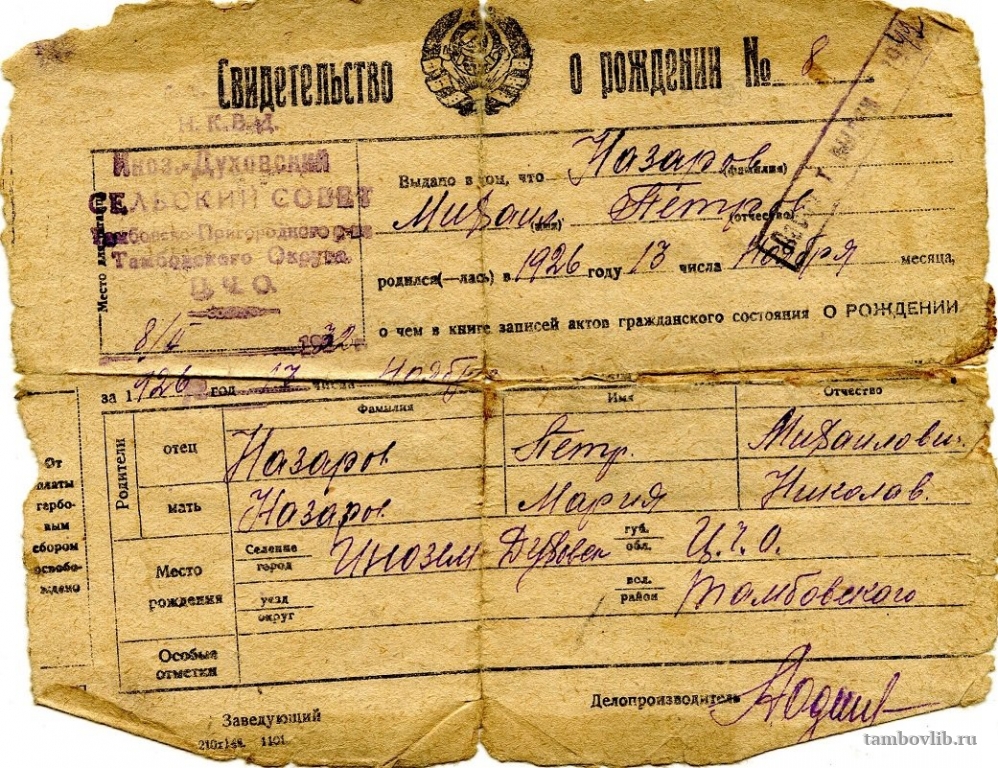 Свидетельство о рождении № 8
Н. К. В. Д.
Иноз.-Духовский
СЕЛЬСКИЙ СОВЕТ
Тамбовско-Пригородного р-на
Тамбовского Округа
Ц. Ч. О.
8/II 1932
Выдано в том, что Назаров
(фамилия)
Михаил Петров
(имя) (отчество)
родился(—лась) в 1926 году 13 числа Ноября месяца,
о чем в книге записей актов гражданского состояния О РОЖДЕНИИ
за 1926 год числа Ноября
Фамилия Имя Отчество
Родители
отец Назаров Петр. Михайлович
мать Назаров Мария Николав.
Место рождения
Селение город Инозем Духовск губ. обл. Ц.Ч.О.
уезд округ вол. район Тамбовского
Особые отметки
От платы гербовым сбором освобождено
Заведующий Делопроизводитель
1101
tambovlib.ru